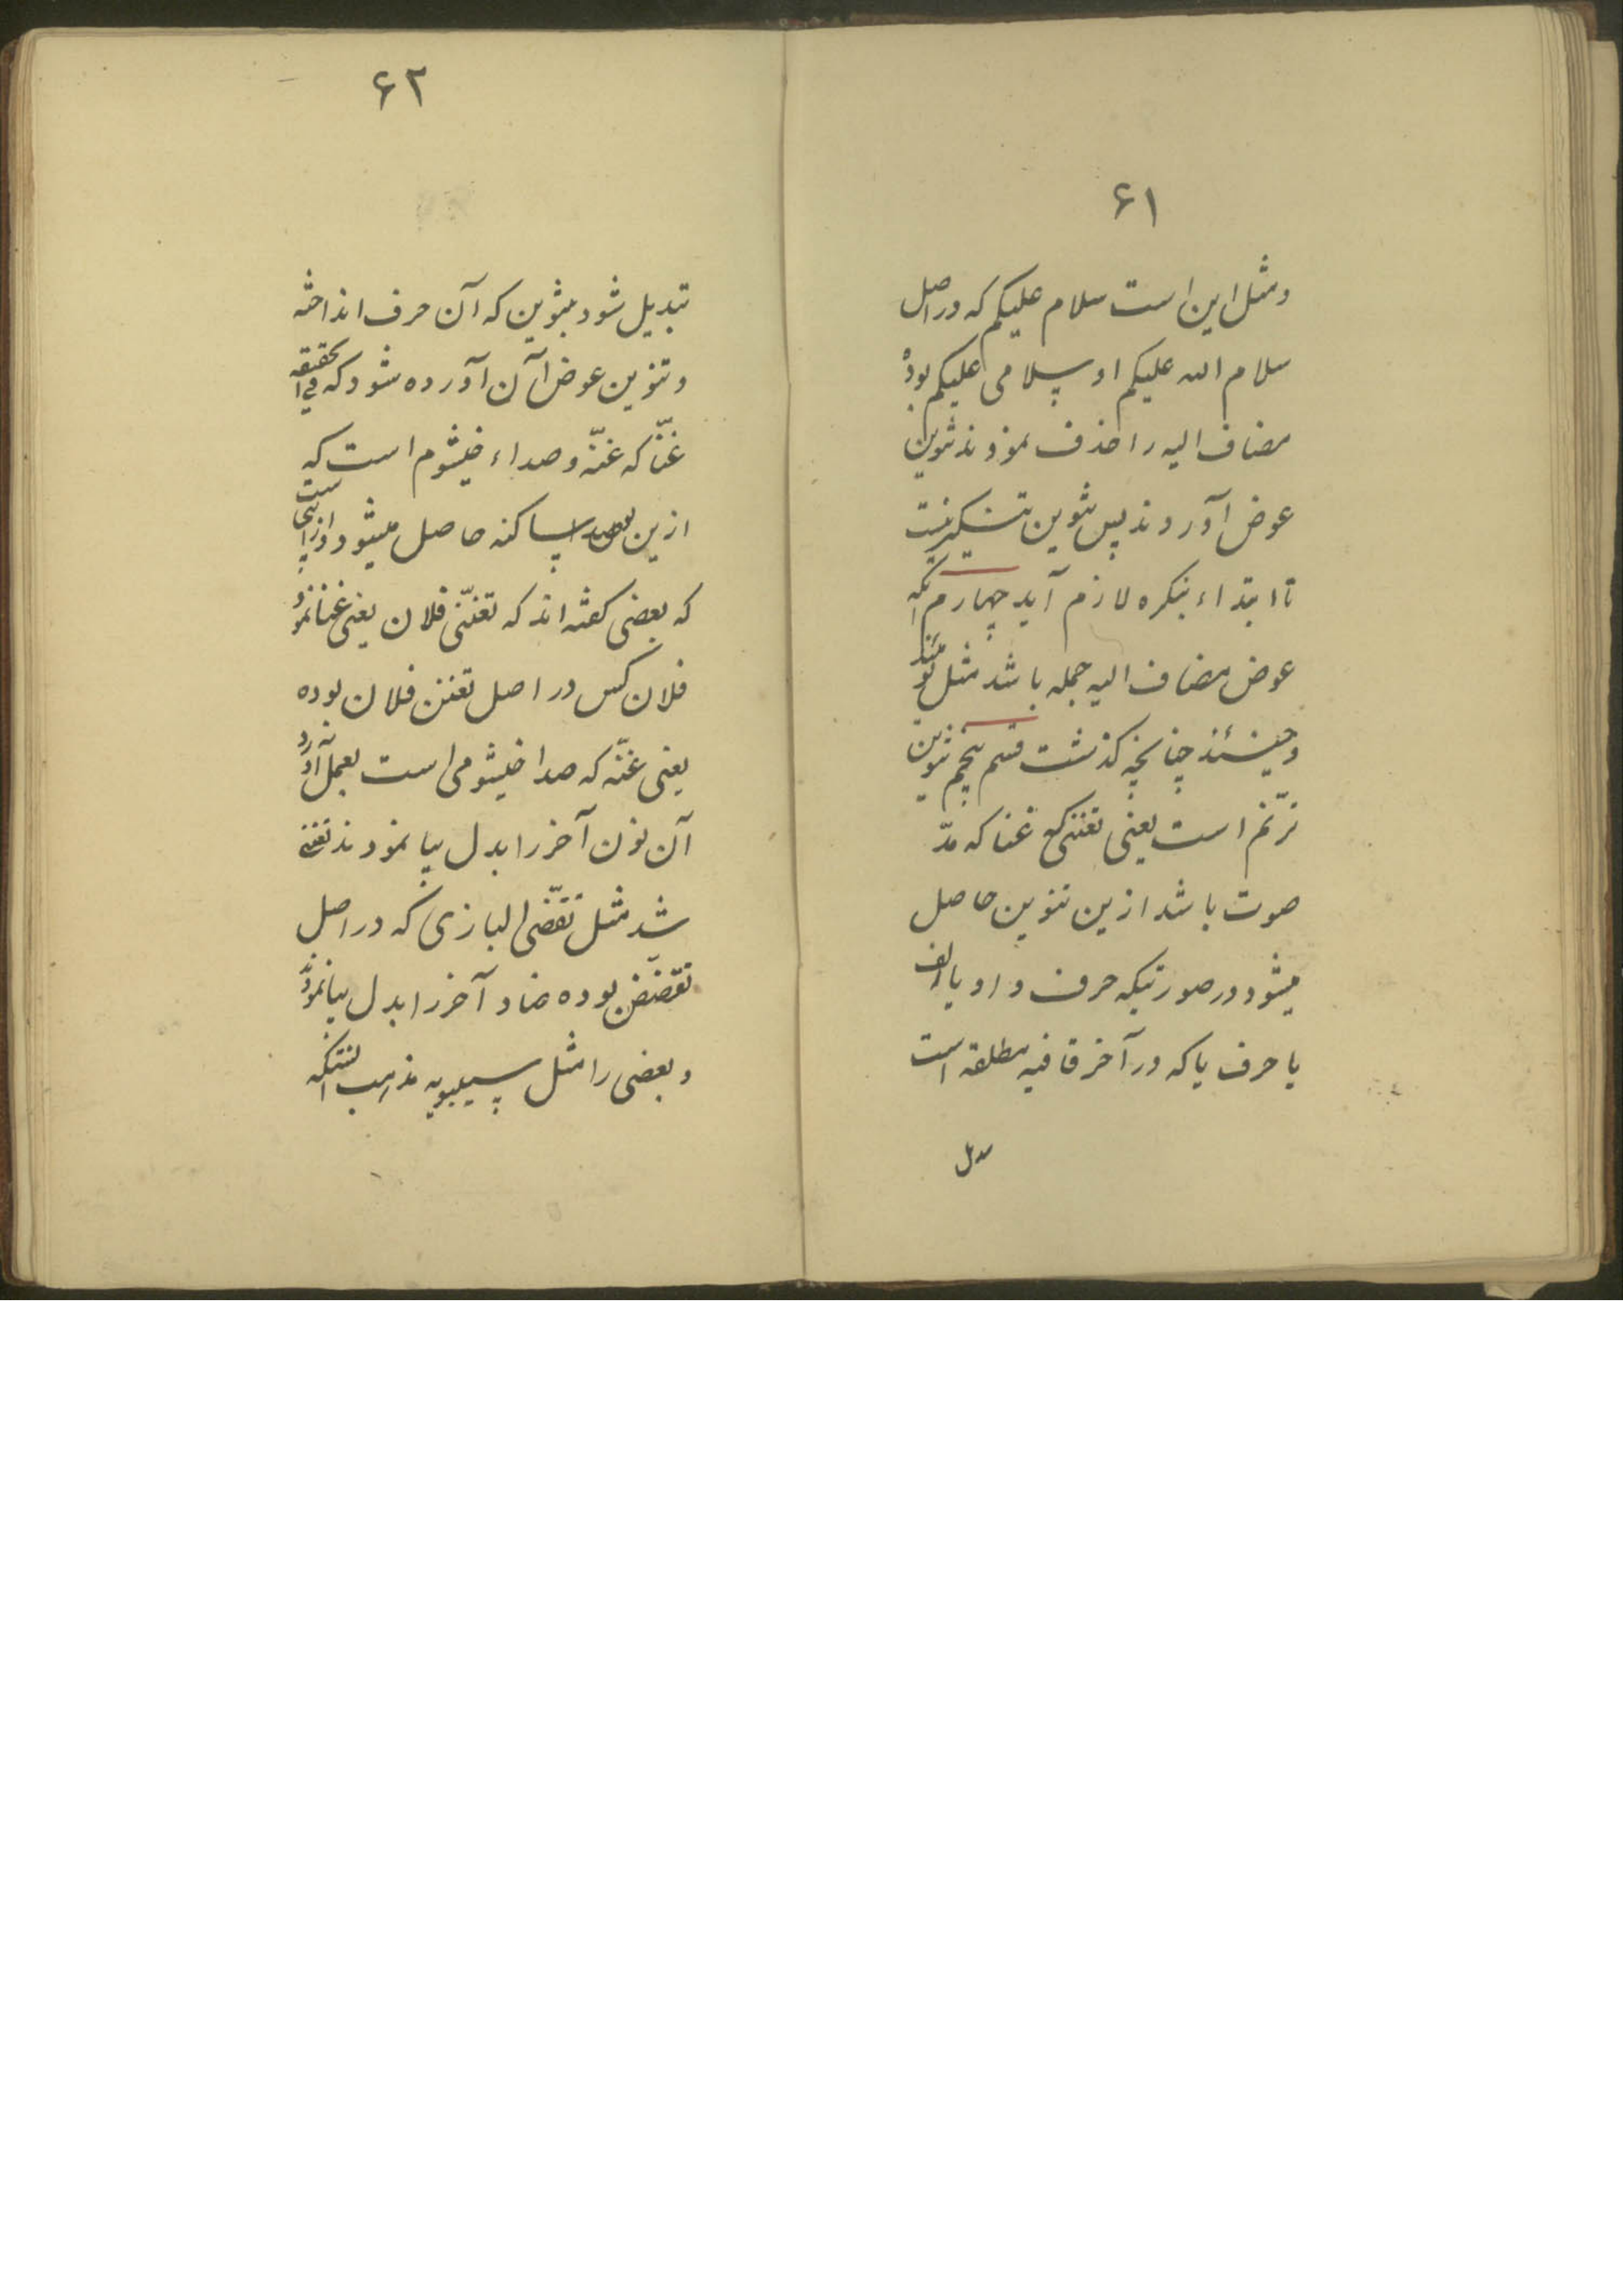 ۶۱
ومثل این است سلام علیکم که در اصل
سلام الله علیکم او سلامی علیکم بوده
مضاف الیه را حذف نمودند تنوین
عوض آوردند پس تنوین تنکیر نیست
تا ابتداء بنکره لازم آید چهارم آنکه
عوض مضاف الیه جمله باشد مثل یومئذ
وحینئذ چنانچه گذشت قسم پنجم تنوین
ترنّم است یعنی تغنی که غنا که مدّ
صوت باشد ازین تنوین حاصل
میشود در صورتیکه حرف واو یا الف
یا حرف یا که در آخر قافیه مطلقه است
۶۲
تبدیل شود بتنوین که آن حرف انداخته
وتنوین عوض آن آورده شود که فی الحقیقه
غنّا که غنّه وصداء خیشوم است که
ازین نون ساکنه حاصل میشود و از اینجاست
که بعضی گفته اند که تغنّی فلان یعنی غنا نمود
فلان کس در اصل تغنن فلان بوده
یعنی غنّه که صدا خیشومی است بعمل آورد
آن نون آخر را بدل بیا نمودند تغنی
شد مثل تقضّی البازی که در اصل
تقضّض بوده ضاد آخر را بدل بیا نمودند
وبعضی را مثل سیبویه مذهب اینستکه